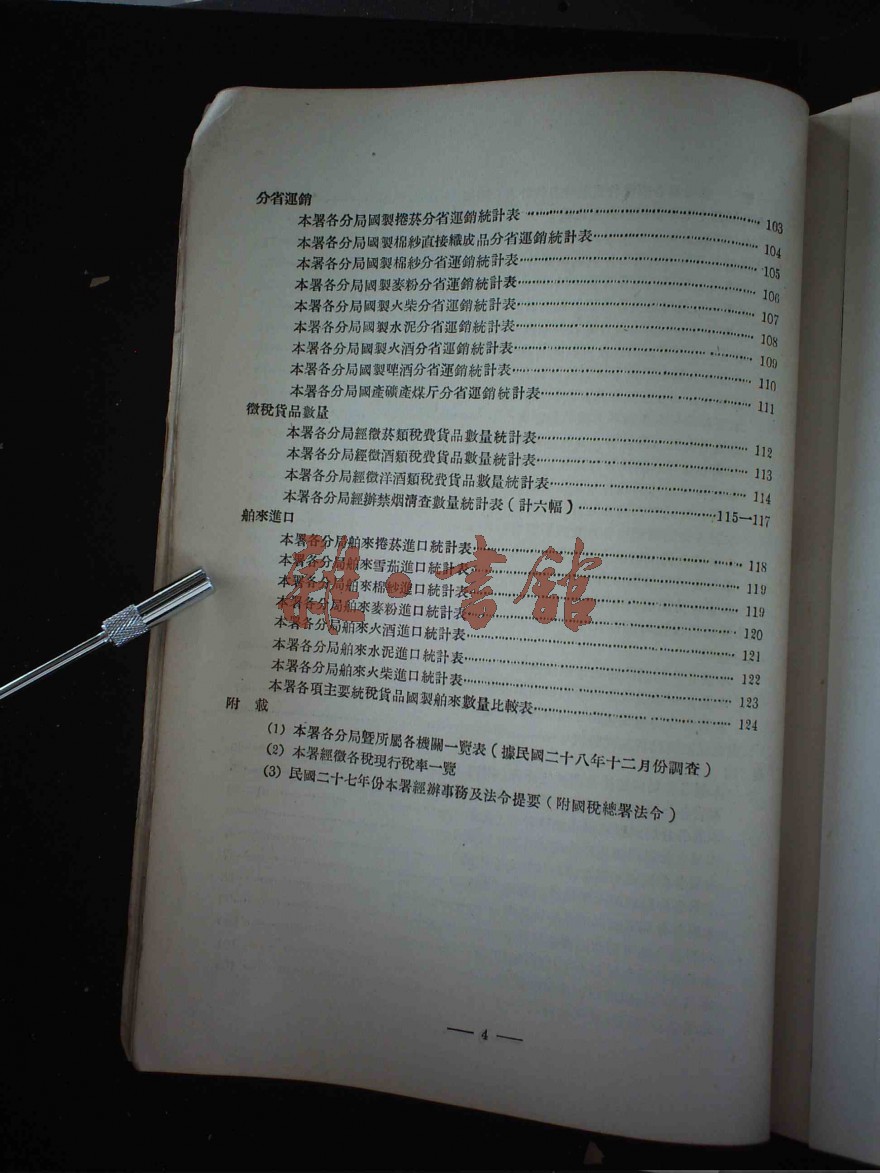 分省運銷
本署各分局國製捲菸分省運銷統計表 103
本署各分局國製棉紗直接織成品分省運銷統計表 104
本署各分局國製棉紗分省運銷統計表 105
本署各分局國製麥粉分省運銷統計表 106
本署各分局國製火柴分省運銷統計表 107
本署各分局國製水泥分省運銷統計表 108
本署各分局國製火酒分省運銷統計表 109
本署各分局國製啤酒分省運銷統計表 110
本署各分局國產礦產煤斤分省運銷統計表 111
徵稅貨品數量
本署各分局經徵菸類稅費貨品數量統計表 112
本署各分局經徵酒類稅費貨品數量統計表 113
本署各分局經徵洋酒類稅費貨品數量統計表 114
本署各分局經辦禁烟淸查數量統計表(計六幅) 115—117
舶來進口
本署各分局舶來捲菸進口統計表 118
本署各分局舶來雪茄進口統計表 119
本署各分局舶來棉紗進口統計表 119
本署各分局舶來麥粉進口統計表 120
本署各分局舶來火酒進口統計表 121
本署各分局舶來水泥進口統計表 122
本署各分局舶來火柴進口統計表 123
本署各項主要統稅貨品國製舶來數量比較表 124
附 載
(1) 本署各分局曁所屬各機關一覽表(據民國二十八年十二月份調查)
(2) 本署經徵各稅現行稅率一覽
(3) 民國二十七年份本署經辦事務及法令提要(附國稅總署法令)
雜·書館
— 4 —